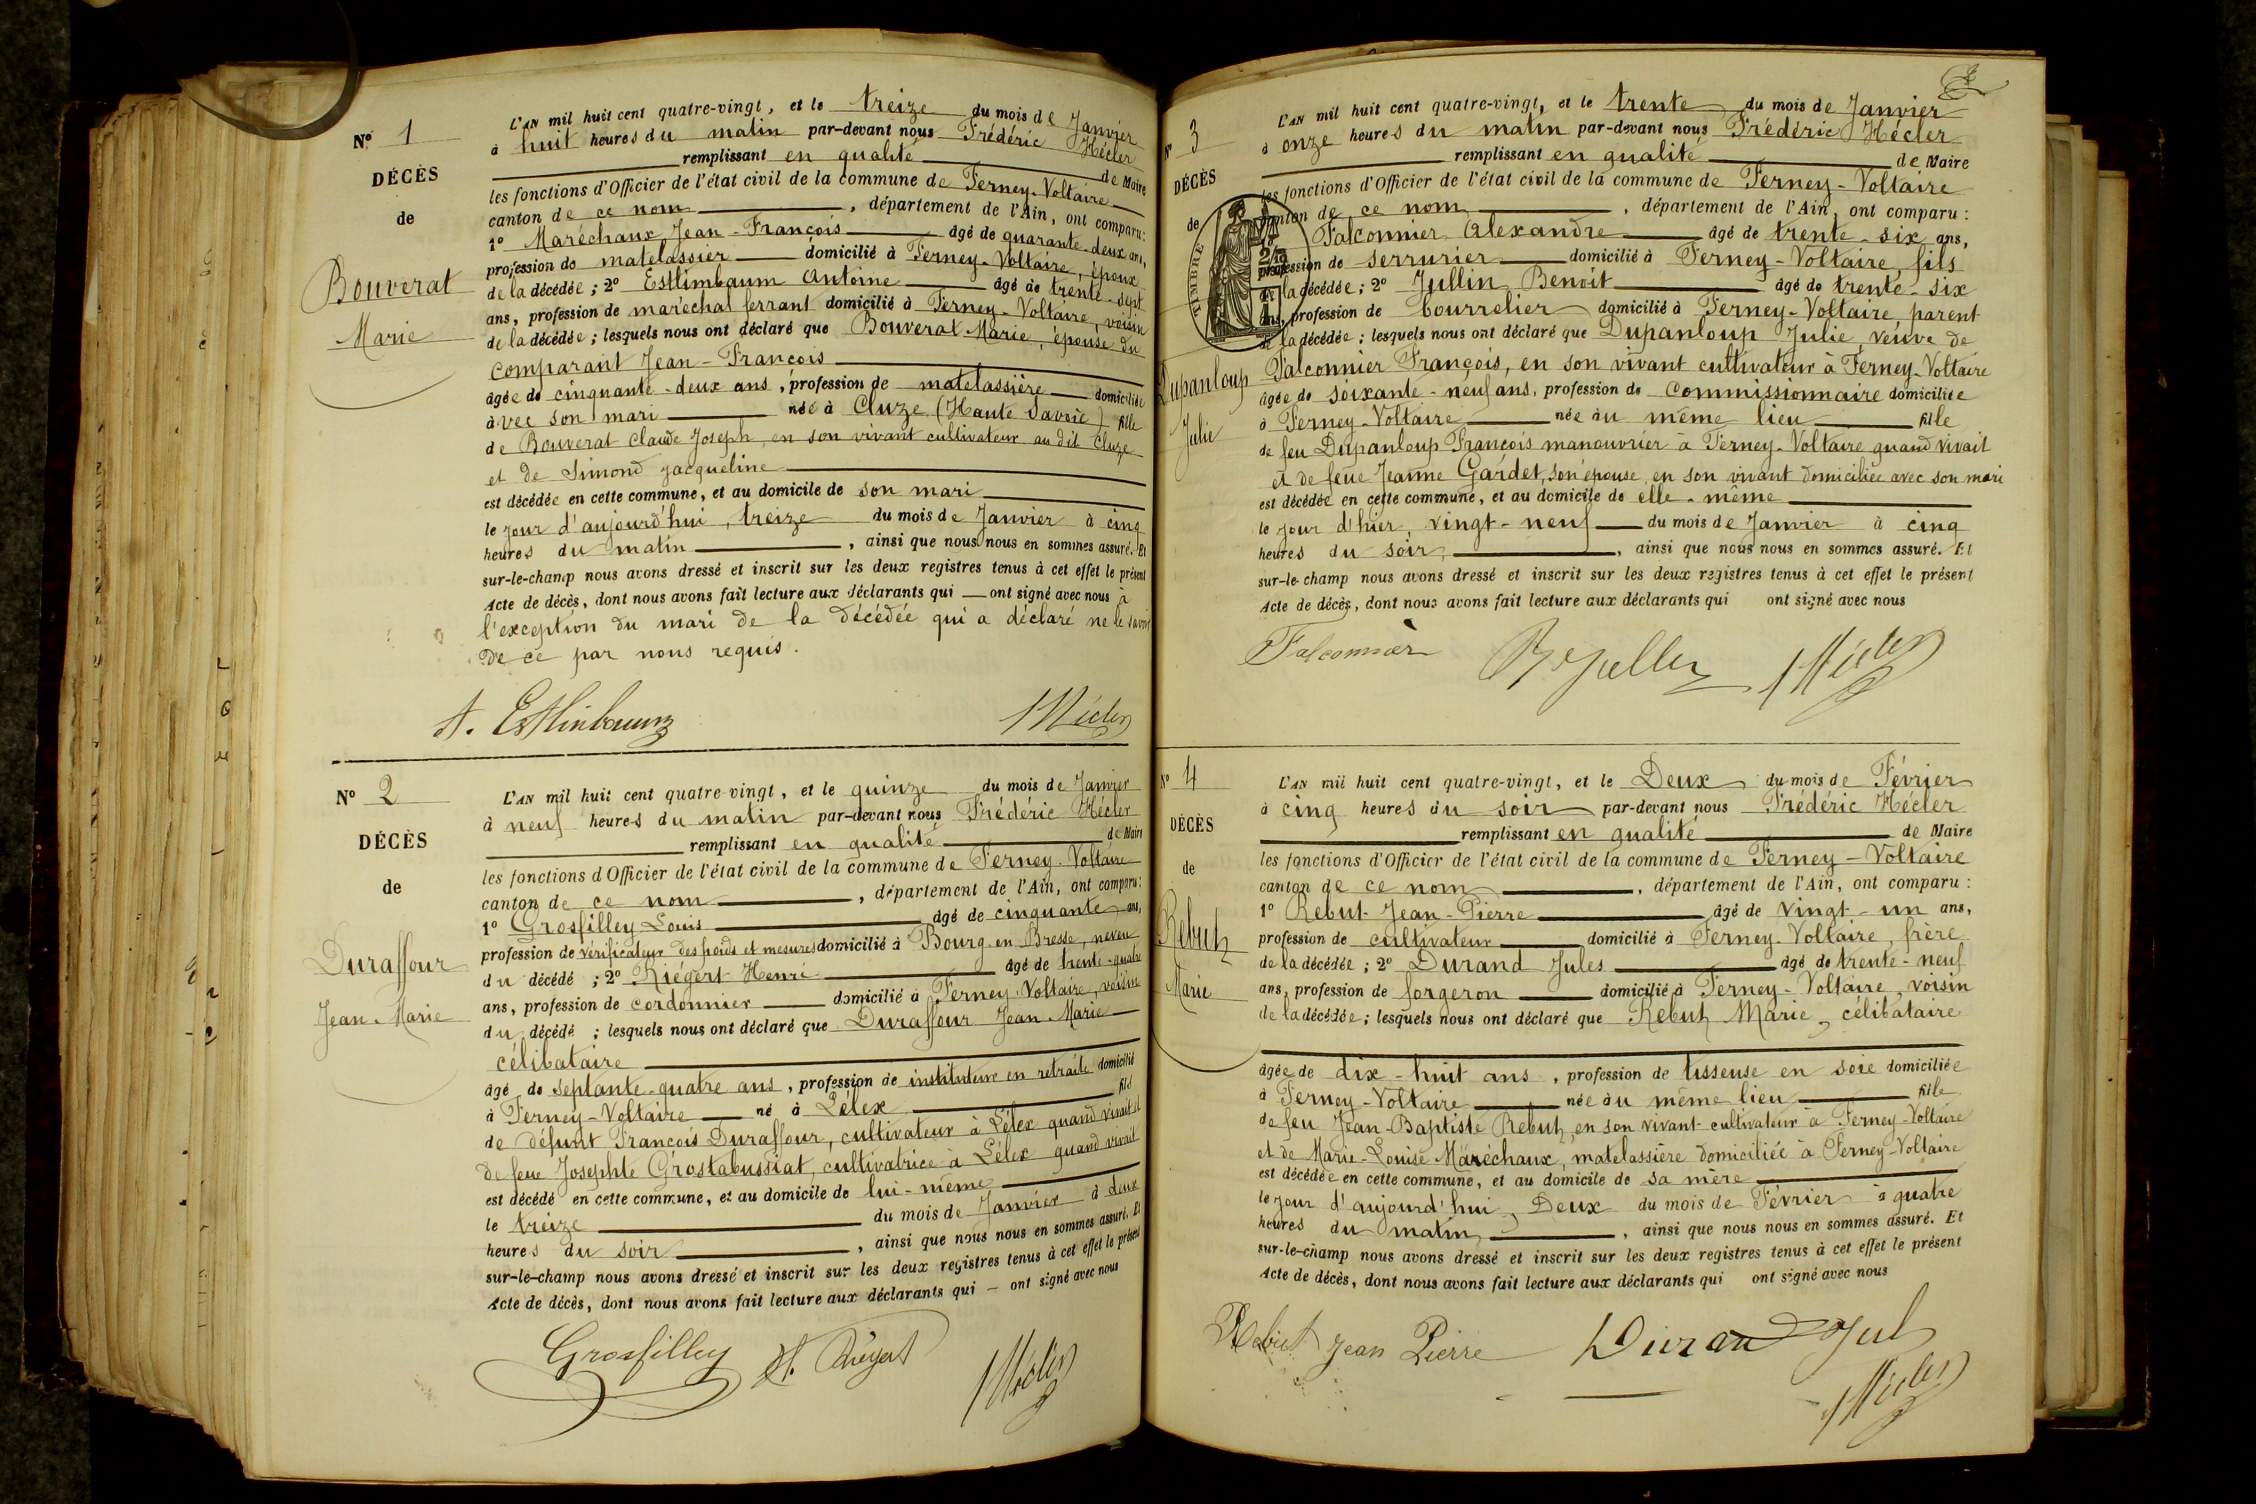 N° 1
DÉCÈS
de
Bouverat
Marie
L'AN mil huit cent quatre-vingt, et le treize du mois de Janvier
à huit heures du matin par-devant nous Frédéric Hécler
remplissant en qualité de Maire
les fonctions d'Officier de l'état civil de la commune de Ferney-Voltaire
canton de ce nom, département de l'Ain, ont comparu:
1° Maréchaux Jean-François âgé de quarante-deux ans,
profession de matelassier domicilié à Ferney-Voltaire, époux
de la décédée; 2° Estlimbaum Antoine âgé de trente-sept
ans, profession de maréchal ferrant domicilié à Ferney-Voltaire, voisin
de la décédée; lesquels nous ont déclaré que Bouverat Marie, épouse du
comparant Jean-François
âgée de cinquante-deux ans, profession de matelassière domiciliée
avec son mari née à Cluze (Haute Savoie) fille
de Bouverat Claude Joseph, en son vivant cultivateur au dit Cluze
et de Simond Jacqueline
est décédée en cette commune, et au domicile de son mari
le jour d'aujourd'hui, treize du mois de Janvier à cinq
heures du matin, ainsi que nous nous en sommes assuré. Et
sur-le-champ nous avons dressé et inscrit sur les deux registres tenus à cet effet le présent
Acte de décès, dont nous avons fait lecture aux déclarants qui ont signé avec nous à
l'exception du mari de la décédée qui a déclaré ne le savoir
de ce par nous requis.
A. Estlinbaum Hécler
N° 2
DÉCÈS
de
Duraffour
Jean-Marie
L'AN mil huit cent quatre-vingt, et le quinze du mois de Janvier
à neuf heures du matin par-devant nous Frédéric Hécler
remplissant en qualité de Maire
les fonctions d'Officier de l'état civil de la commune de Ferney-Voltaire
canton de ce nom, département de l'Ain, ont comparu:
1° Grosfilley Louis âgé de cinquante ans,
profession de vérificateur des poids et mesures domicilié à Bourg en Bresse, neveu
du décédé; 2° Riégert Henri âgé de trente-quatre
ans, profession de cordonnier domicilié à Ferney-Voltaire, voisin
du décédé; lesquels nous ont déclaré que Duraffour Jean-Marie
célibataire
âgé de septante-quatre ans, profession de instituteur en retraite domicilié
à Ferney-Voltaire né à Lélex fils
de défunt François Duraffour, cultivateur à Lélex quand vivait et
de feue Josephte Grostabussiat, cultivatrice à Lélex quand vivait
est décédé en cette commune, et au domicile de lui-même
le treize du mois de Janvier à deux
heures du soir, ainsi que nous nous en sommes assuré. Et
sur-le-champ nous avons dressé et inscrit sur les deux registres tenus à cet effet le présent
Acte de décès, dont nous avons fait lecture aux déclarants qui ont signé avec nous
Grosfilley H. Riégert Hécler
N° 3
DÉCÈS
de
Dupanloup
Julie
TIMBRE
L'AN mil huit cent quatre-vingt, et le trente du mois de Janvier
à onze heures du matin par-devant nous Frédéric Hécler
remplissant en qualité de Maire
les fonctions d'Officier de l'état civil de la commune de Ferney-Voltaire
canton de ce nom, département de l'Ain, ont comparu:
Falconnier Alexandre âgé de trente-six ans,
profession de serrurier domicilié à Ferney-Voltaire, fils
de la décédée; 2° Jullin Benoit âgé de trente-six
ans, profession de bourrelier domicilié à Ferney-Voltaire, parent
de la décédée; lesquels nous ont déclaré que Dupanloup Julie, veuve de
Falconnier François, en son vivant cultivateur à Ferney-Voltaire
âgée de soixante-neuf ans, profession de commissionnaire domiciliée
à Ferney-Voltaire née au même lieu fille
de feu Dupanloup François manouvrier à Ferney-Voltaire quand vivait
et de feue Jeanne Gardet, son épouse, en son vivant domiciliée avec son mari
est décédée en cette commune, et au domicile de elle-même
le jour d'hier, vingt-neuf du mois de Janvier à cinq
heures du soir, ainsi que nous nous en sommes assuré. Et
sur-le-champ nous avons dressé et inscrit sur les deux registres tenus à cet effet le présent
Acte de décès, dont nous avons fait lecture aux déclarants qui ont signé avec nous
Falconnier B Jullin Hécler
N° 4
DÉCÈS
de
Rebut
Marie
L'AN mil huit cent quatre-vingt, et le Deux du mois de Février
à cinq heures du soir par-devant nous Frédéric Hécler
remplissant en qualité de Maire
les fonctions d'Officier de l'état civil de la commune de Ferney-Voltaire
canton de ce nom, département de l'Ain, ont comparu:
1° Rebut Jean-Pierre âgé de vingt-un ans,
profession de cultivateur domicilié à Ferney-Voltaire, frère
de la décédée; 2° Durand Jules âgé de trente-neuf
ans, profession de forgeron domicilié à Ferney-Voltaire, voisin
de la décédée; lesquels nous ont déclaré que Rebut Marie, célibataire
âgée de dix-huit ans, profession de tisseuse en soie domiciliée
à Ferney-Voltaire née au même lieu fille
de feu Jean-Baptiste Rebut, en son vivant cultivateur à Ferney-Voltaire
et de Marie-Louise Maréchaux, matelassière domiciliée à Ferney-Voltaire
est décédée en cette commune, et au domicile de sa mère
le jour d'aujourd'hui, Deux du mois de Février à quatre
heures du matin, ainsi que nous nous en sommes assuré. Et
sur-le-champ nous avons dressé et inscrit sur les deux registres tenus à cet effet le présent
Acte de décès, dont nous avons fait lecture aux déclarants qui ont signé avec nous
Rebut Jean Pierre Durand Jul Hécler